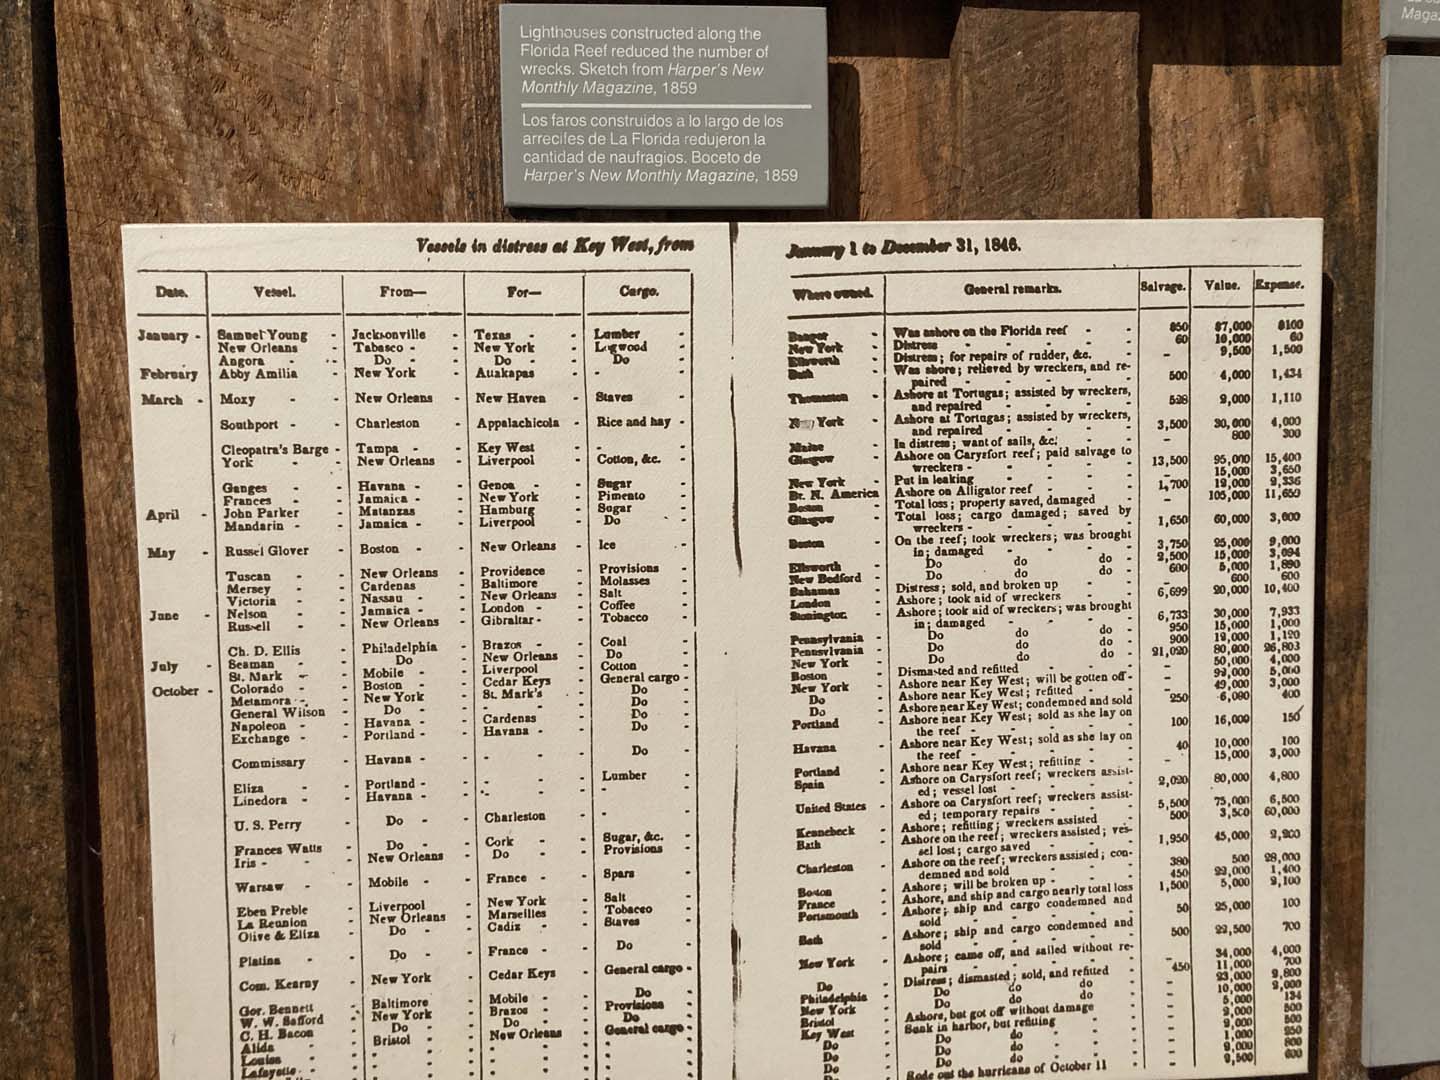 Lighthouses constructed along the
Florida Reef reduced the number of
wrecks. Sketch from Harper's New
Monthly Magazine, 1859
Los faros construidos a lo largo de los
arrecifes de La Florida redujeron la
cantidad de naufragios. Boceto de
Harper's New Monthly Magazine, 1859
Magaz
Vessels in distress at Key West, from January 1 to December 31, 1846.
Date. Vessel. From— For— Cargo. Where owned. General remarks. Salvage. Value. Expense.
January - Samuel Young - Jacksonville - Texas - - Lumber - Bangor - Was ashore on the Florida reef - - 850 $7,000 $100
New Orleans Tabasco - - New York - Logwood - New York - Distress - - - - 60 10,000 60
Angora - - Do - - Do - - Do - Ellsworth - Distress; for repairs of rudder, &c. - - 9,500 1,500
February Abby Amilia - New York - Attakapas - - - Bath - Was shore; relieved by wreckers, and re-
paired - - - - 500 4,000 1,434
March - Moxy - - New Orleans - New Haven - Staves - Thomaston - Ashore at Tortugas; assisted by wreckers,
and repaired - - - - 528 9,000 1,110
Southport - - Charleston - Appalachicola - Rice and hay - New York - Ashore at Tortugas; assisted by wreckers,
and repaired - - - - 3,500 30,000 4,000
Cleopatra's Barge - Tampa - - Key West - - - Maine - In distress; want of sails, &c. - - - 800 300
York - - New Orleans - Liverpool - Cotton, &c. - Glasgow - Ashore on Carysfort reef; paid salvage to
wreckers - - - - 13,500 95,000 15,400
Ganges - - Havana - - Genoa - - Sugar - New York - Put in leaking - - - - 15,000 3,650
Frances - - Jamaica - - New York - Pimento - Br. N. America Ashore on Alligator reef - - - 1,700 12,000 2,336
April - John Parker - Matanzas - Hamburg - Sugar - Boston - Total loss; property saved, damaged - - 105,000 11,650
Mandarin - - Jamaica - - Liverpool - Do - Glasgow - Total loss; cargo damaged; saved by
wreckers - - - - 1,650 60,000 3,600
May - Russel Glover - Boston - - New Orleans - Ice - Boston - On the reef; took wreckers; was brought
in; damaged - - - - 3,750 25,000 9,000
Tuscan - - New Orleans - Providence - Provisions - Ellsworth - Do do do - 2,500 15,000 3,094
Mersey - - Cardenas - Baltimore - Molasses - New Bedford - Do do do - 600 5,000 1,890
Victoria - - Nassau - - New Orleans - Salt - Bahamas - Distress; sold, and broken up - - - 600 600
June - Nelson - - Jamaica - - London - - Coffee - London - Ashore; took aid of wreckers - - 6,699 90,000 10,400
Russell - - New Orleans - Gibraltar - - Tobacco - Stonington. - Ashore; took aid of wreckers; was brought
in; damaged - - - - 6,733 30,000 7,933
Ch. D. Ellis - Philadelphia - Brazos - - Coal - Pennsylvania - Do do do - 950 15,000 1,000
July - Seaman - - Do - New Orleans - Do - Pennsylvania - Do do do - 900 12,000 1,120
St. Mark - - Mobile - - Liverpool - Cotton - New York - Do do do - 21,020 80,000 26,803
October - Colorado - - Boston - - Cedar Keys - General cargo - Boston - Dismasted and refitted - - - - 50,000 4,000
Metamora - - New York - St. Mark's - Do - New York - Ashore near Key West; will be gotten off - 5,000
General Wilson - Do - - - - Do - Do - Ashore near Key West; refitted - - - 49,000 3,000
Napoleon - - Havana - - Cardenas - Do - Do - Ashore near Key West; condemned and sold 250 400
Exchange - - Portland - - Havana - - Do - Portland - Ashore near Key West; sold as she lay on
the reef - - - - 100 16,000 150
Commissary - Havana - - - - Do - Havana - Ashore near Key West; sold as she lay on
the reef - - - - 40 10,000 100
Eliza - - Portland - - - - Lumber - Portland - Ashore near Key West; refitting - - - 15,000 3,000
Linedora - - Havana - - - - Spain - Ashore on Carysfort reef; wreckers assist-
ed; vessel lost - - - 2,020 80,000 4,800
U. S. Perry - Do - - Charleston - - - United States - Ashore on Carysfort reef; wreckers assist-
ed; temporary repairs - - 5,500 75,000 6,500
Frances Watts - Do - - Cork - - Sugar, &c. - Kennebeck - Ashore; refitting; wreckers assisted - 500 3,500 60,000
Iris - - - New Orleans - Do - - Provisions - Bath - Ashore on the reef; wreckers assisted; ves-
sel lost; cargo saved - - 1,950 45,000 2,200
Warsaw - - Mobile - - France - - Spars - Charleston - Ashore on the reef; wreckers assisted; con-
demned and sold - - - 380 500 28,000
Eben Preble - Liverpool - New York - Salt - Boston - Ashore; will be broken up - - - 450 22,000 1,400
La Reunion - New Orleans - Marseilles - Tobacco - France - Ashore, and ship and cargo nearly total loss 1,500 5,000 2,100
Olive & Eliza - Do - - Cadiz - - Staves - Portsmouth - Ashore; ship and cargo condemned and
sold - - - - 50 25,000 100
Platina - - Do - - France - - Do - Bath - Ashore; ship and cargo condemned and
sold - - - - 500 22,500 700
Com. Kearny - New York - Cedar Keys - General cargo - New York - Ashore; came off, and sailed without re-
pairs - - - - 450 34,000 4,000
Gor. Bennett - Baltimore - Mobile - - Do - Do - Distress; dismasted; sold, and refitted - - 11,000 700
W. W. Safford - New York - Brazos - - Provisions - Philadelphia - Do do do - - 23,000 9,800
C. H. Bacon - Do - - Do - - Do - New York - Do do do - - 10,000 2,000
Alida - - Bristol - - New Orleans - General cargo - Bristol - Ashore, but got off without damage - - 5,000 134
Louisa - - Key West - Sunk in harbor, but refitting - - - 2,000 500
Lafayette - - Do - Do do do - - 2,000 500
Do - Do do do - - 1,000 250
Do - Do do do - - 2,000 800
Do - Rode out the hurricane of October 11 - 2,500 600